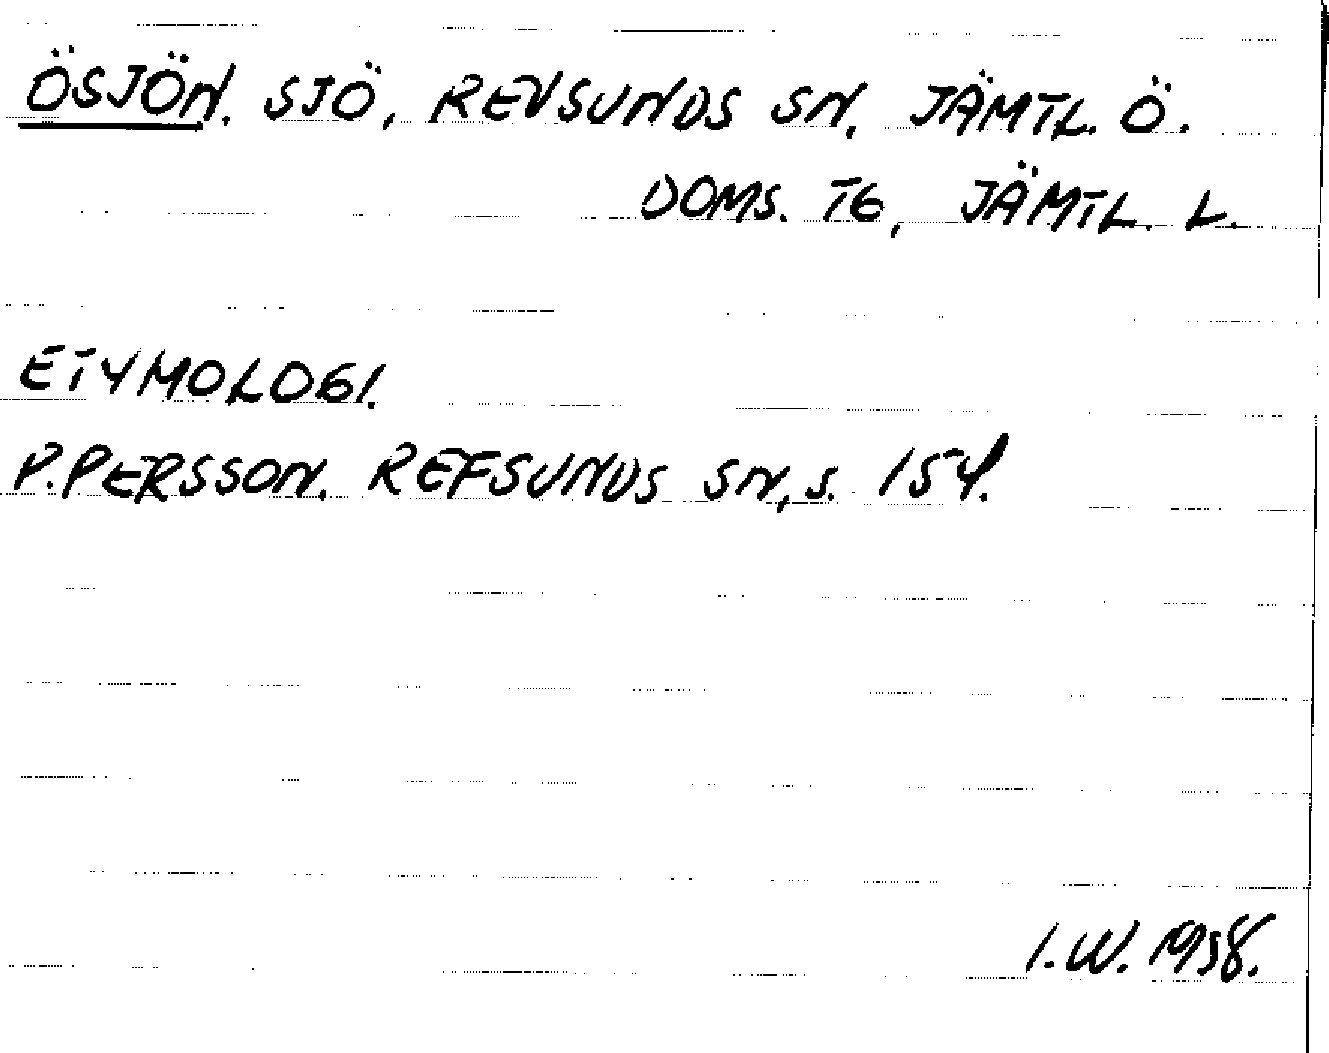 ÖSJÖN. SJÖ, REVSUNDS SN. JÄMTL. Ö.
DOMS. TG, JÄMTL. L.
ETYMOLOGI.
P.PERSSON. REFSUNDS SN, S. 154.
I.W. 1938.